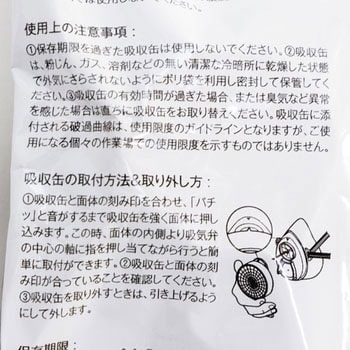 使用上の注意事項：
①保存期限を過ぎた吸収缶は使用しないでください。②吸収缶
は、粉じん、ガス、溶剤などの無い清潔な冷暗所に乾燥した状態
で外気にさらされないようにポリ袋を利用し密封して保管してく
ださい。③吸収缶の有効時間が過ぎた場合、または臭気など異常
を感じた場合は直ちに吸収缶をお取り替えください。吸収缶に添
付される破過曲線は、使用限度のガイドラインとなりますが、ご使
用になる個々の作業場での使用限度を示すものではありません。
吸収缶の取付方法&取り外し方：
①吸収缶と面体の刻み印を合わせ、「パチ
ッ」と音がするまで吸収缶を強く面体に押し
込みます。この時、面体の内側より吸気弁
の中心の軸に指を押し当てながら行うと簡
単に取付ができます。②吸収缶と面体の刻
み印が合っていることを確認してください。
③吸収缶を取り外すときは、引き上げるように
して外します。
保存期限：